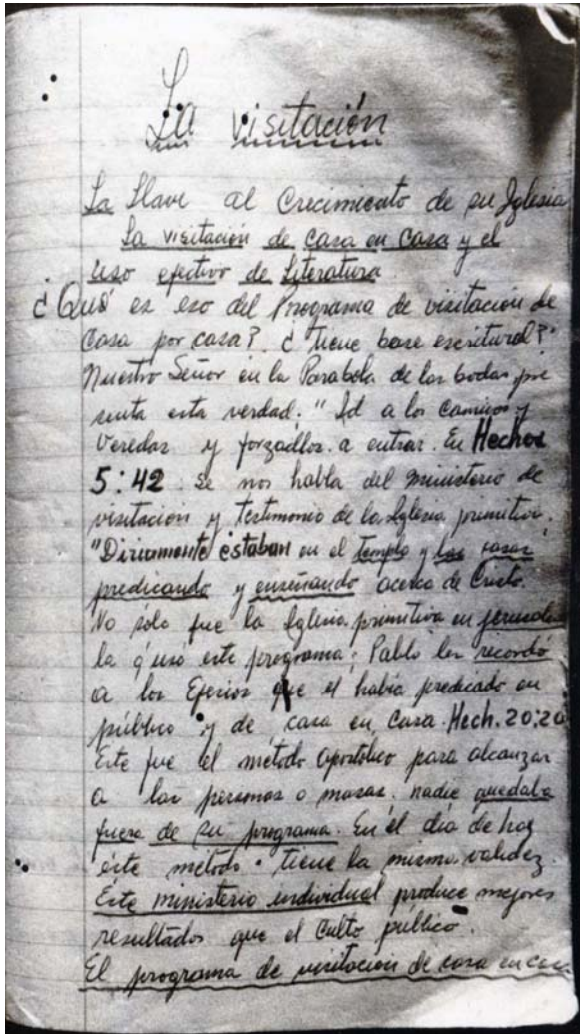 La visitación
La Llave al Crecimiento de su Iglesia
La visitación de casa en casa y el
uso efectivo de Literatura
¿Qué es eso del Programa de visitación de
Casa por casa? ¿tiene base escritural?
Nuestro Señor en la Parabola de las bodas pre
senta esta verdad. "Id a los caminos y
Veredas y forzadlos a entrar. En Hechos
5:42 se nos habla del ministerio de
visitación y testimonio de la Iglesia primitiva.
"Diriamente estaban en el templo y las casas
predicando y enseñando acerca de Cristo.
No solo fue la Iglesia primitiva en Jerusalen
la q' usó este programa; Pablo les recordó
a los Efesios que el había predicado en
público y de casa en casa. Hech. 20:20
Este fue el método apostólico para alcanzar
a las personas o masas. nadie quedaba
fuera de su programa. En el día de hoy
éste método tiene la misma validez.
Este ministerio individual produce mejores
resultados que el Culto público.
El programa de visitación de casa en casa